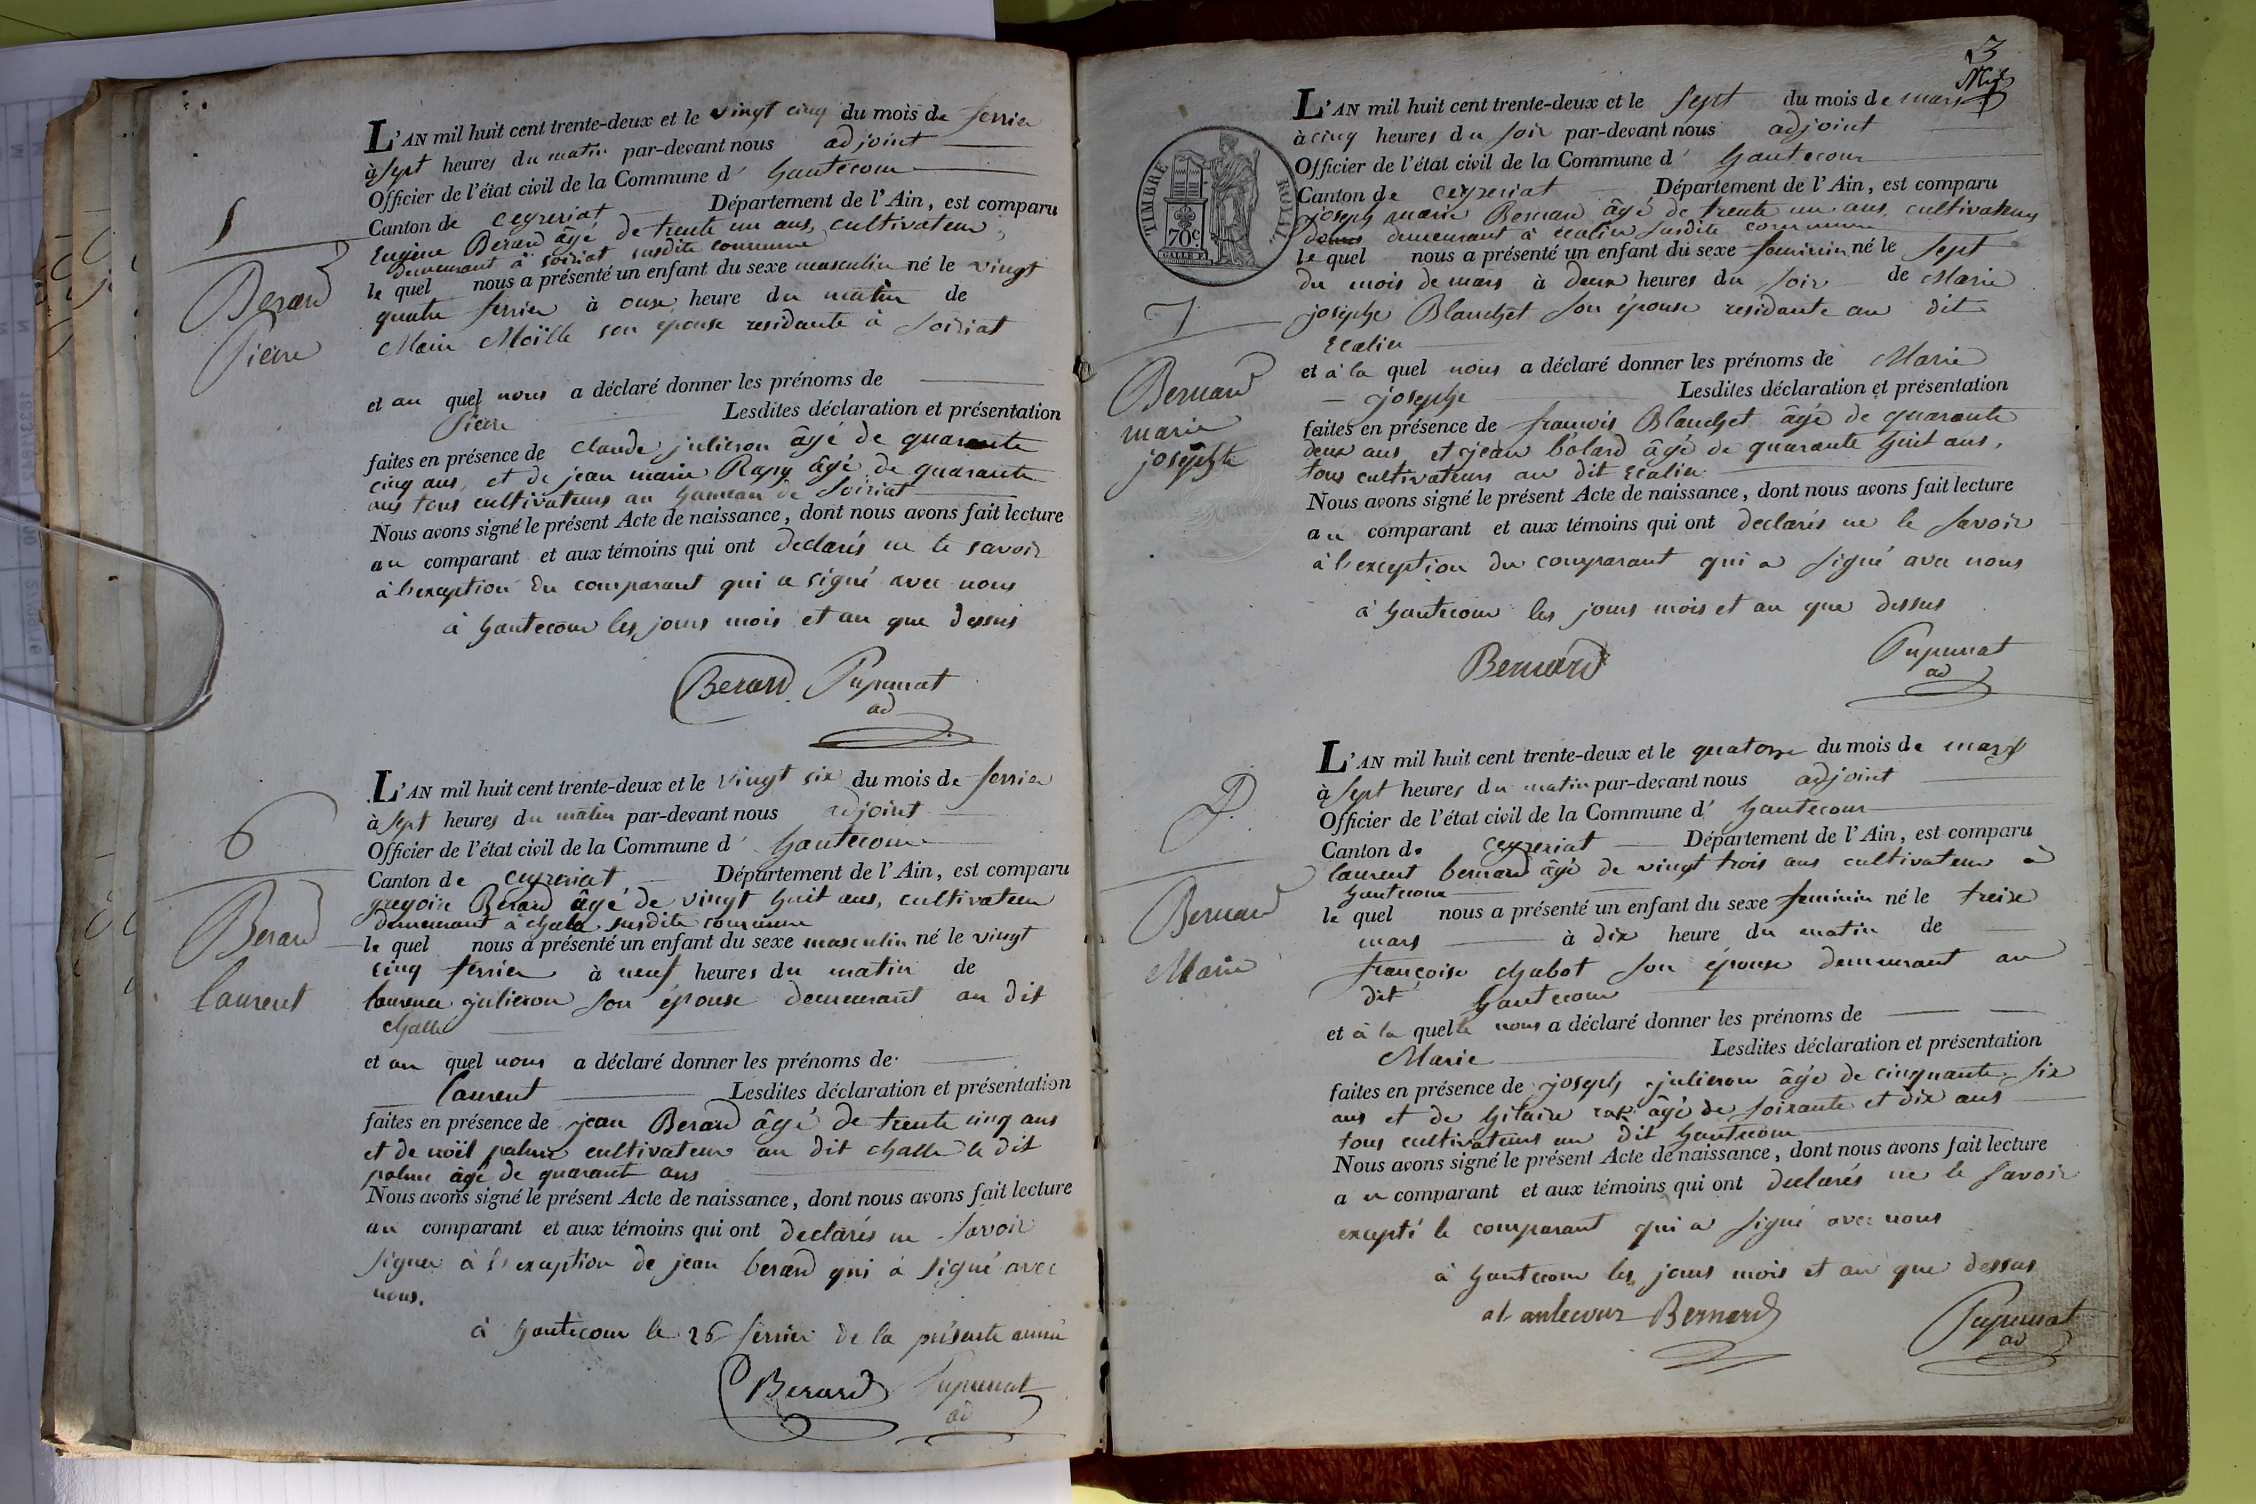 5
Berard
Pierre
L'AN mil huit cent trente-deux et le vingt cinq du mois de fevrier
à sept heures du matin par-devant nous adjoint
Officier de l'état civil de la Commune d' hautecour
Canton de ceyzeriat Département de l'Ain, est comparu
Eugène Berard âgé de trente un ans, cultivateur,
demeurant à soiriat susdite commune
le quel nous a présenté un enfant du sexe masculin né le vingt
quatre fevrier à onze heure du matin de
Marie Moïlle son épouse residante à Soiriat
et au quel nous a déclaré donner les prénoms de
Pierre Lesdites déclaration et présentation
faites en présence de claude julieron âgé de quarante
cinq ans, et de jean marie Rapy âgé de quarante
ans tous cultivateurs au hameau de Soiriat
Nous avons signé le présent Acte de naissance, dont nous avons fait lecture
au comparant et aux témoins qui ont declarés ne le savoir
à l'exception du comparant qui a signé avec nous
à hautecour les jours mois et an que dessus
Berard Pupunat
ad
6
Berard
laurent
L'AN mil huit cent trente-deux et le vingt six du mois de fevrier
à sept heures du matin par-devant nous adjoint
Officier de l'état civil de la Commune d' hautecour
Canton de ceyzeriat Département de l'Ain, est comparu
gregoire Berard âgé de vingt huit ans, cultivateur
demeurant à chala susdite commune
le quel nous a présenté un enfant du sexe masculin né le vingt
cinq fevrier à neuf heures du matin de
laurence julieron son épouse demeurant au dit
challe
et au quel nous a déclaré donner les prénoms de
laurent Lesdites déclaration et présentation
faites en présence de jean Berard âgé de trente cinq ans
et de noël palme cultivateur au dit challe le dit
palme âgé de quarant ans
Nous avons signé le présent Acte de naissance, dont nous avons fait lecture
au comparant et aux témoins qui ont declarés ne savoir
signer à l'exception de jean berard qui à signé avec
nous.
à hautecour le 26 fevrier de la présente année
Berard Pupunat
ad
3
TIMBRE ROYAL
70c
7
Bernard
marie
josephte
L'AN mil huit cent trente-deux et le sept du mois de mars
à cinq heures du soir par-devant nous adjoint
Officier de l'état civil de la Commune d' hautecour
Canton de ceyzeriat Département de l'Ain, est comparu
joseph marie Bernard âgé de trente un ans, cultivateur
demeurant à Ecalier susdite commune
le quel nous a présenté un enfant du sexe feminin né le sept
du mois de mars à deux heures du soir de Marie
josephe Blanchet son épouse residante au dit
Ecalier
et à la quel nous a déclaré donner les prénoms de Marie
josephe Lesdites déclaration et présentation
faites en présence de françois Blanchet âgé de quarante
deux ans et jean bolard âgé de quarante huit ans,
tous cultivateurs au dit Ecalier
Nous avons signé le présent Acte de naissance, dont nous avons fait lecture
au comparant et aux témoins qui ont declarés ne le savoir
à l'exception du comparant qui a signé avec nous
à hautecour les jours mois et an que dessus
Bernard Pupunat
ad
Bernard
Marie
L'AN mil huit cent trente-deux et le quatorze du mois de mars
à sept heures du matin par-devant nous adjoint
Officier de l'état civil de la Commune d' hautecour
Canton de ceyzeriat Département de l'Ain, est comparu
laurent bernard âgé de vingt trois ans cultivateur à
hautecour
le quel nous a présenté un enfant du sexe feminin né le treize
mars à dix heure du matin de
françoise chabot son épouse demeurant au
dit hautecour
et à la quelle nous a déclaré donner les prénoms de
Marie Lesdites déclaration et présentation
faites en présence de joseph julieron âgé de cinquante six
ans et de hilaire âgé de soixante et dix ans
tous cultivateurs au dit hautecour
Nous avons signé le présent Acte de naissance, dont nous avons fait lecture
au comparant et aux témoins qui ont declarés ne le savoir
excepté le comparant qui a signé avec nous
à hautecour les jours mois et an que dessus
Bernard Pupunat
ad